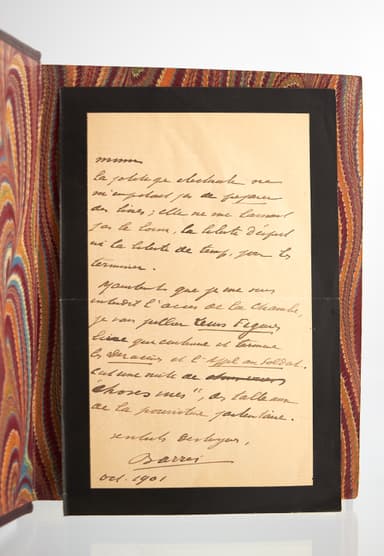 la politique electorale ne
m'empechait pas de preparer
des livres ; elle ne me laissait
pas le loisir, la liberté d'esprit
ni la liberté de temps, pour les
terminer.
Maintenant que je me suis
interdit l'accès de la Chambre,
je vais publier Leurs Figures
livre qui continue et termine
les Deracinés et l'Appel au Soldat.
C'est une suite de
"choses vues", des tableaux
de la pourriture parlementaire.
Barrès
oct. 1901